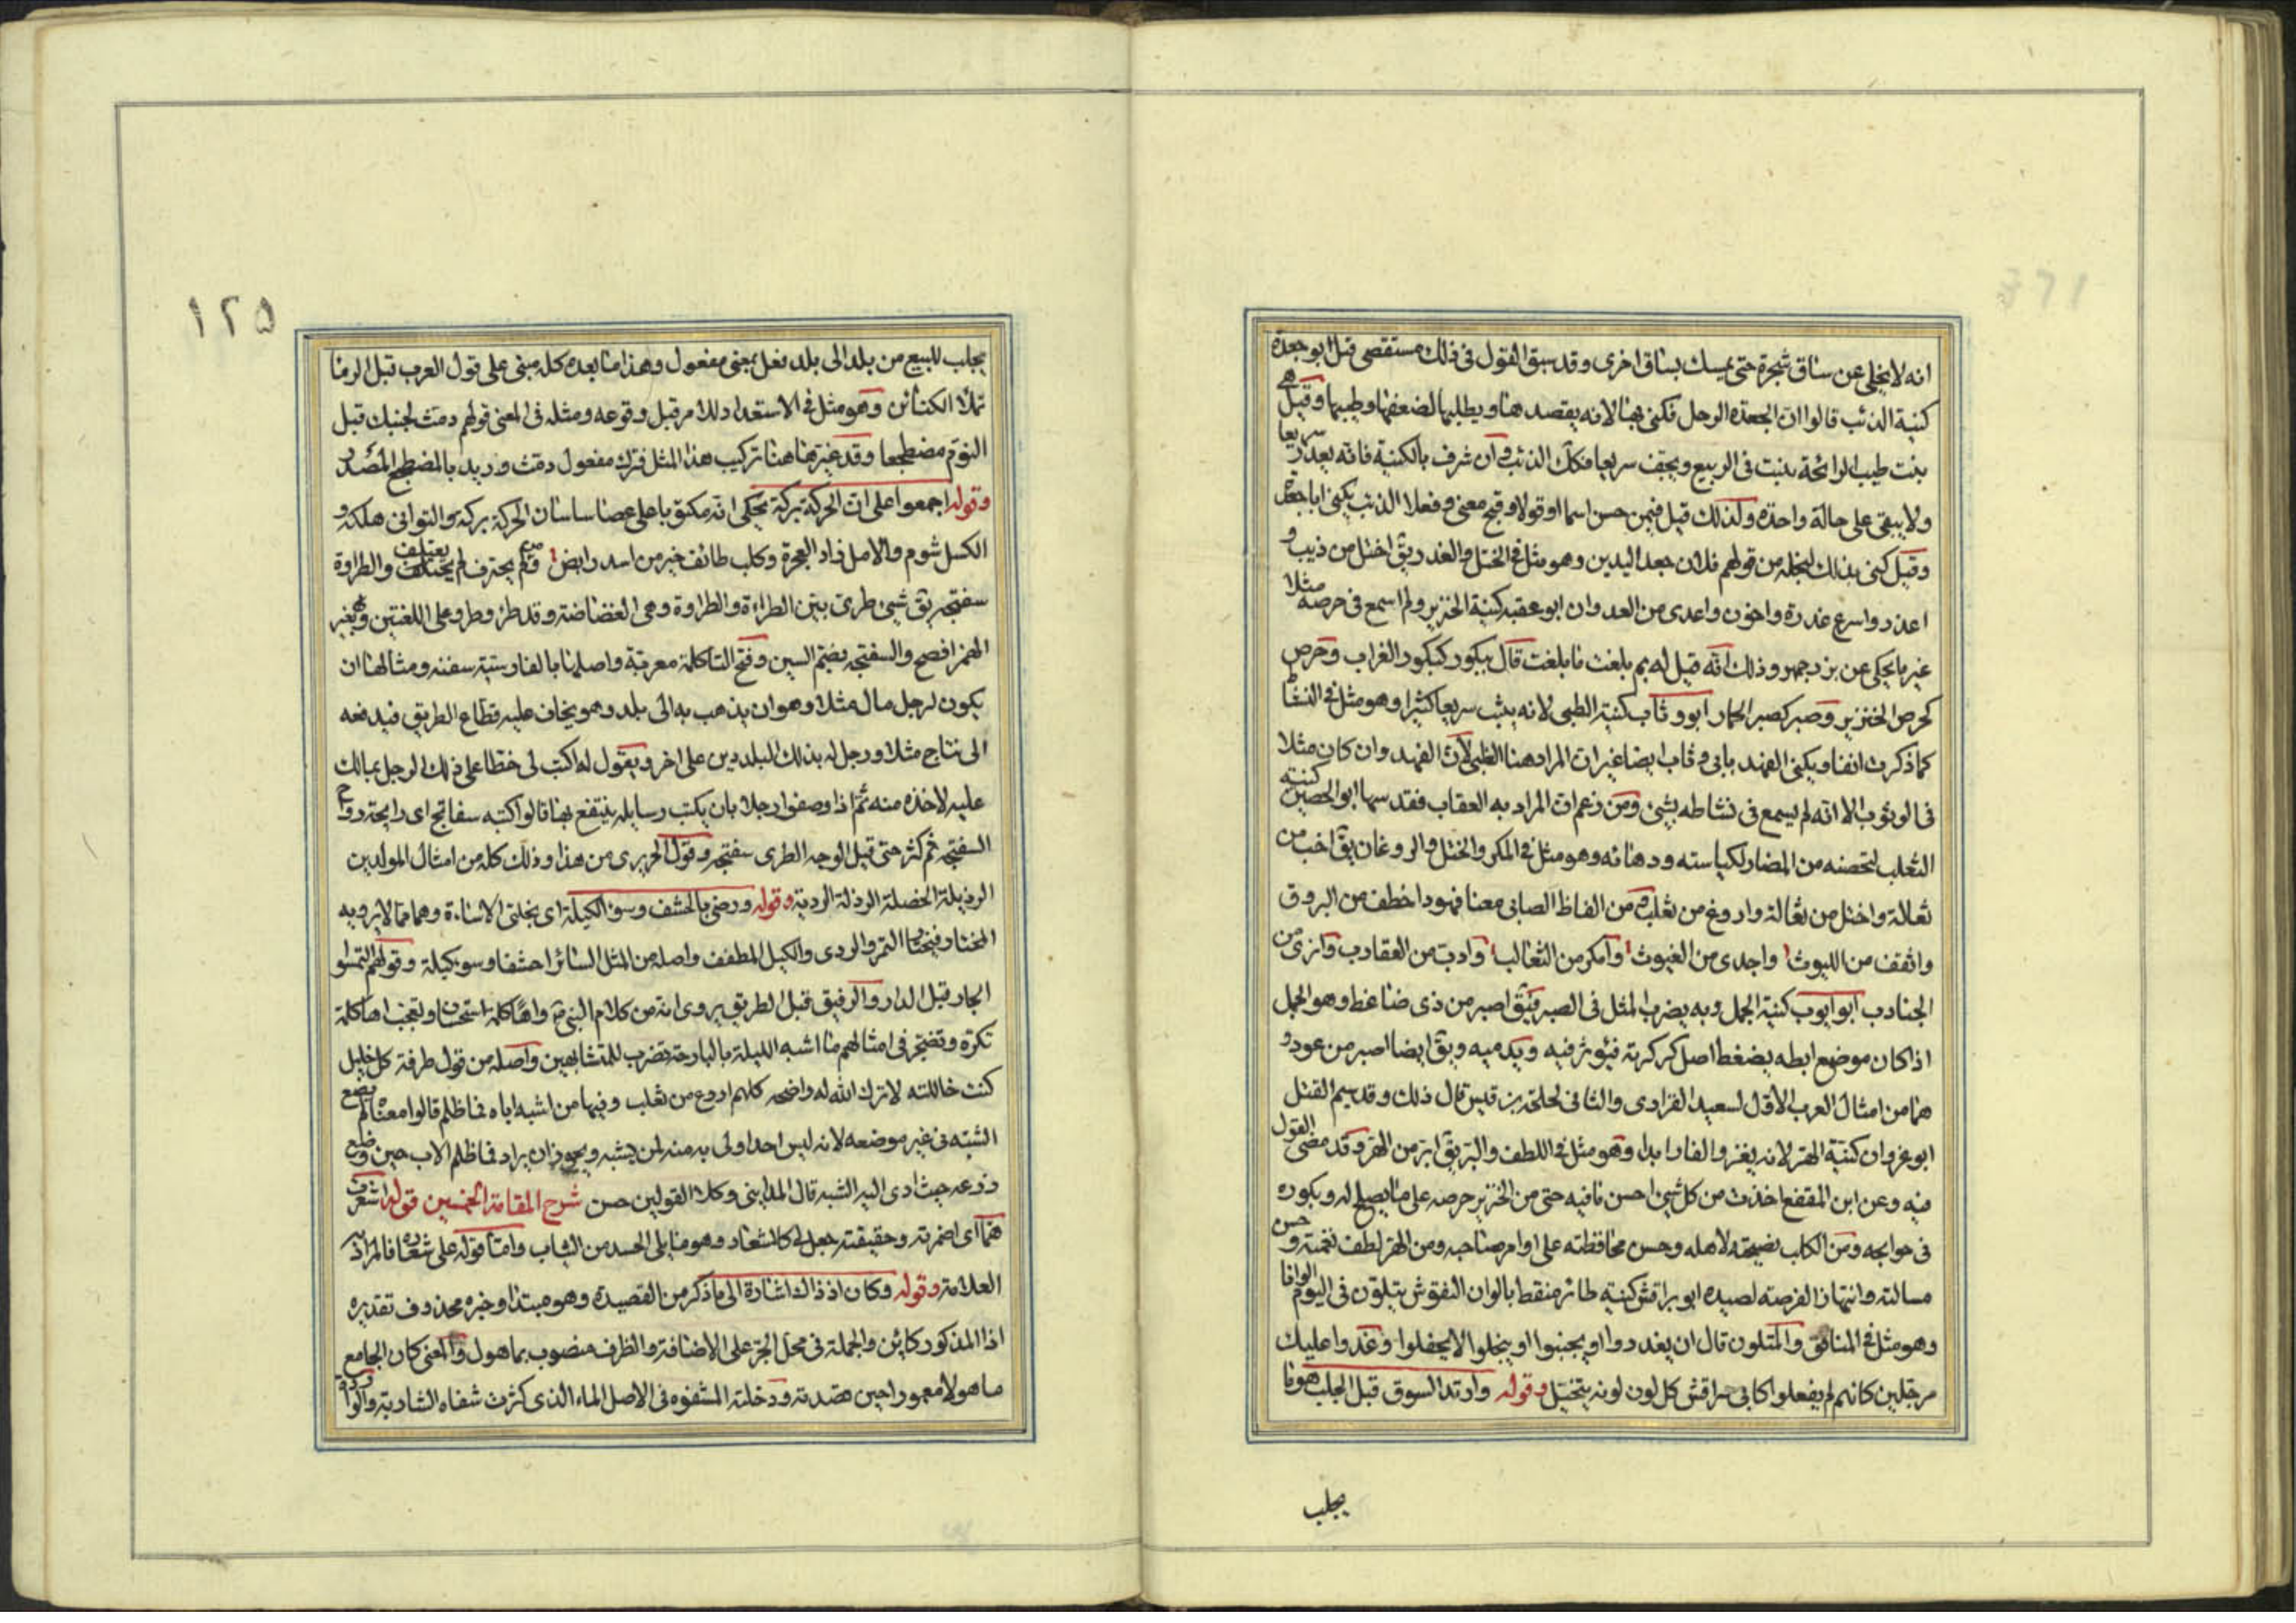 انه لا يخلى عن ساق شجرة حتى يمسك بساق اخرى وقد سبق القول فى ذلك مستقصى قبل ابو جعدة
كنية الذئب قالوا ان الجعدة الرحل فكنى بها لانه يقصدها ويطلبها لضعفها وطيبها وقيل هى
بنت طيب الرائحة ينبت فى الربيع ويجف سريعا فكك الذئب وان شرف بالكنية فانه يغدر سريعا
ولا يبقى على حالة واحدة ولذلك قيل فيمن حسن اسما او قولا وقبح معنى وفعلا الذئب يكنى ابا جعدة
وقيل كنى بذلك لبخله من قولهم فلان جعد اليدين وهو مثل فى الختل والغدر يق اختل من ذيب و
اغدر واسرع غدرة واخون واعدى من العدوان ابو عقبه كنية الخنزير ولم اسمع فى حرصه مثلا
غير ما يحكى عن بزرجمهر وذلك انه قيل له بم بلغت ما بلغت قال ببكور كبكور الغراب وحرص
كحرص الخنزير وصبر كصبر الحمار ابو وثاب كنية الظبى لانه يثب سريعا كثيرا وهو مثل فى النشا
كما ذكرت انفا ويكنى الفهد بابى وثاب ايضا غير ان المراد هنا الظبى لان الفهد وان كان مثلا
فى الوثوب الا انه لم يسمع فى نشاطه بشئ ومن زعم ان المراد به العقاب فقد سها ابو الحصين كنية
الثعلب لتحصنه من المضار لكياسته ودهائه وهو مثل فى المكر والختل والروغان يق اخب من
ثعالة واختل من ثعالة واروغ من ثعلب من الفاظ الصابى معنا فهود اخطف من البروق
واثقف من الليوث واجدى من الغيوث وامكر من الثعالب وادب من العقارب وانزى من
الجنادب ابو ايوب كنية الجمل وبه يضرب المثل فى الصبر فيق اصبر من ذى ضاغط وهو الجمل
اذا كان موضع ابطه يضغط اصل كركرته فيؤثر فيه ويدميه ويق ايضا اصبر من عود و
هما من امثال العرب الاول لسعيد الفزارى والثانى لحلحلة بن قيس قال ذلك وقد سيم القتل
ابو غزوان كنية الهر لانه يغزو الفار ابدا وهو مثل فى اللطف والبر يق ابر من الهر وقد مضى القول
فيه وعن ابن المقفع اخذت من كل شئ احسن ما فيه حتى من الخنزير حرصه على ما يصلح له وبكوره
فى حوايجه ومن الكلب نصيحته لاهله وحسن محافظته على اوامر صاحبه ومن الهر لطف نغمته وحسن
مسالته وانتهاز الفرصته لصيده ابو براقش كنية طائر منقط بالوان النقوش يتلون فى اليوم الوانا
وهو مثل فى المنافق والمتلون قال ان يغدروا او يجبنوا او يبخلوا لا يحفلوا وغدوا عليك
مرجلين كانهم لم يفعلوا كابى براقش كل لون لونه يتخيل وقوله وارتد السوق قبل الجلب هو ما
يجلب
١٢٥
يجلب للبيع من بلد الى بلد فعل بمعنى مفعول وهذا ما بعده كله مبنى على قول العرب قبل الرما
تملأ الكنائن وهو مثل فى الاستعداد للامر قبل وقوعه ومثله فى المعنى قولهم دمث لجنبك قبل
النوم مضطجعا وقد غير هاهنا تركيب هذا المثل فترك مفعول دمث ويريد بالمضطجع المصدر
وقوله اجمعوا على ان الحركة بركة يحكى انه مكتوبا على عصا ساسان الحركة بركة والتوانى هلكة و
الكسل شوم والامل زاد العجزة وكلب طائف خير من اسد رابض ومن لم يحترف لم يعتلف والطراوة
سفتجه يق شئ طرى بين الطراءة والطراوة وهى الغضاضة وقد طرؤ وطرو على اللغتين وبغير
الهمز افصح والسفتجه بضم السين وفتح التا كلمة معربة واصلها بالفارسية سفته ومثالها ان
يكون لرجل مال مثلا وهو ان يذهب به الى بلد وهو يخاف عليه قطاع الطريق فيدفعه
الى تاجر مثلا ورجل له بذلك البلد دين على اخر ويقول له اكتب لى خطا على ذلك الرجل بمالك
عليه لاخذه منه ثم اذا وصفوا رجلا بان يكتب رسايله ينتفع بها قالوا كتبه سفاتج اى رايجة رواج
السفتجه ثم كثر حتى قيل الوجه الطرى سفتجه وقول الحريرى من هذا وذلك كله من امثال المولدين
الرذيلة الخصلة الرذلة الردية وقوله ورضى بالحشف وسوء الكيلة اى بخلتى الاساءة وهما مما لا يرويه
المختار فيختار التمر والردى والكيل المطفف واصله من المثل السائر احشفا وسو كيلة وقولهم التمسوا
الجار قبل الدار والرفيق قبل الطريق يروى انه من كلام النبى واها كلمة استحسان وتعجب اها كلمة
تكره وتضجر فى امثالهم ما اشبه الليلة بالبارحة تضرب للمتشابهين واصله من قول طرفة كل خليل
كنت خاللته لا ترك الله له واضحه كلهم اروع من ثعلب وفيها من اشبه اباه فما ظلم قالوا معناه لم يضع
الشبه فى غير موضعه لانه ليس احد اولى به منه لمن يشبه ويجوز ان يراد فما ظلم الاب حين وضع
زرعه حيث ادى اليه الشبه قال المداينى وكلا القولين حسن شرح المقامة الخمسين قوله اشعرت
هما اى اضمرته وحقيقته جعل لى كالشعار وهو ما يلى الجسد من الثياب واما قوله على شعاره فالمراد به
العلامة وقوله وكان اذ ذاك اشارة الى ما ذكر من القصيدة وهو مبتدا وخبره محذوف تقديره
اذا المذكور كائن والجملة فى محل الجر على الاضافة والظرف منصوب بماهول والمعنى كان الجامع
ماهولا معمورا حين قصدته ودخلته المشفوه فى الاصل الماء الذى كثرت شفاه الشاربة والواردة